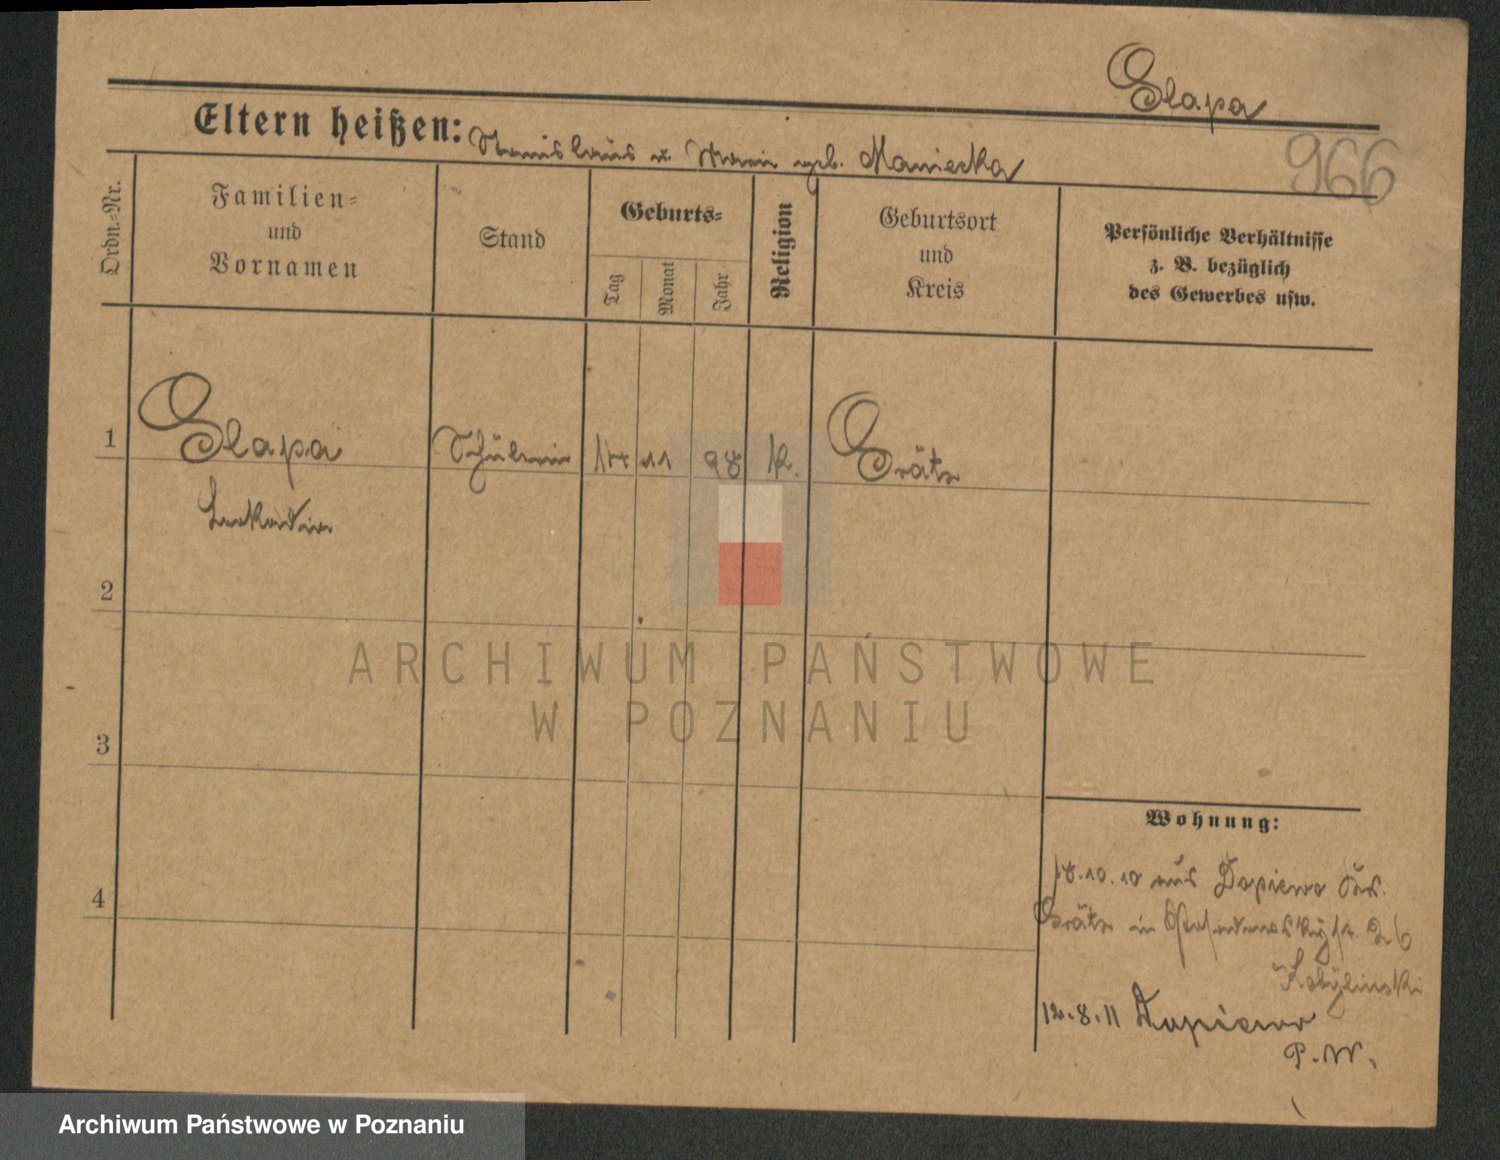 Slapa
966
Eltern heißen: Stanislaus u. Marie geb. Maniecka
Ordn.-Nr.
Familien-
und
Vornamen
Stand
Geburts-
Tag
Monat
Jahr
Religion
Geburtsort
und
Kreis
Persönliche Verhältnisse
z. B. bezüglich
des Gewerbes usw.
1
Slapa
Schülerin
14
11
98
k.
Grätz
Leokadia
2
3
4
Wohnung:
18.10.10 aus Dopiewo Krs.
Grätz in
26
Kobylinski
12.8.11 Dopiewo
P.W.
ARCHIWUM PAŃSTWOWE
W POZNANIU
Archiwum Państwowe w Poznaniu